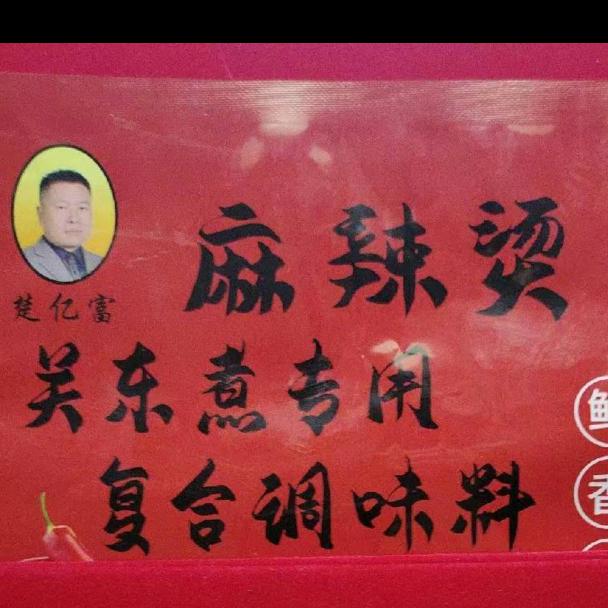 麻辣烫
楚亿富
关东煮专用
复合调味料
香